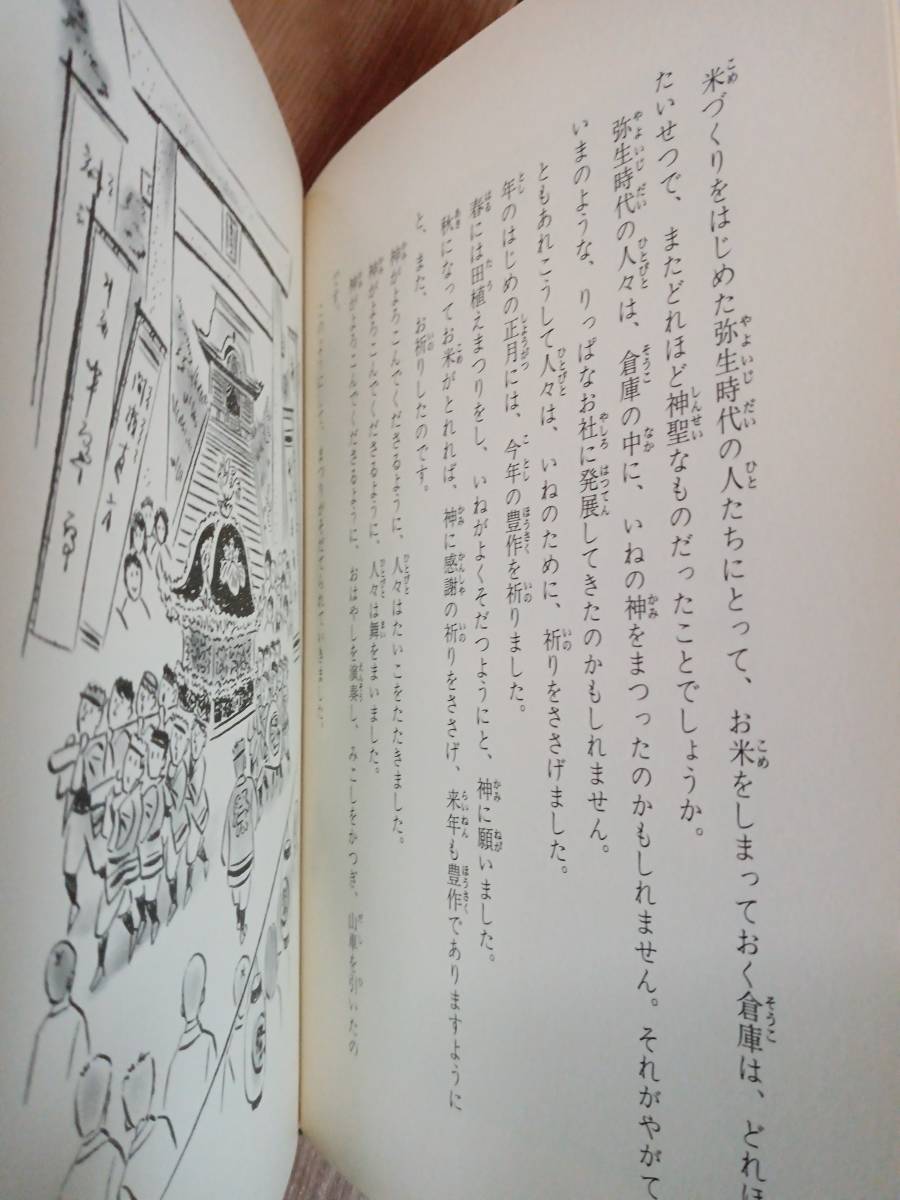 米づくりをはじめた弥生時代の人たちにとって、お米をしまっておく倉庫は、どれほ
たいせつで、またどれほど神聖なものだったことでしょうか。
弥生時代の人々は、倉庫の中に、いねの神をまつったのかもしれません。それがやがて
いまのような、りっぱなお社に発展してきたのかもしれません。
ともあれこうして人々は、いねのために、祈りをささげました。
年のはじめの正月には、今年の豊作を祈りました。
春には田植えまつりをし、いねがよくそだつようにと、神に願いました。
秋になってお米がとれれば、神に感謝の祈りをささげ、来年も豊作でありますように
と、また、お祈りしたのです。
神がよろこんでくださるように、人々はたいこをたたきました。
神がよろこんでくださるように、人々は舞をまいました。
神がよろこんでくださるように、おはやしを演奏し、みこしをかつぎ、山車を引いたの
です。
このようにして、まつりがそだてられていきました。